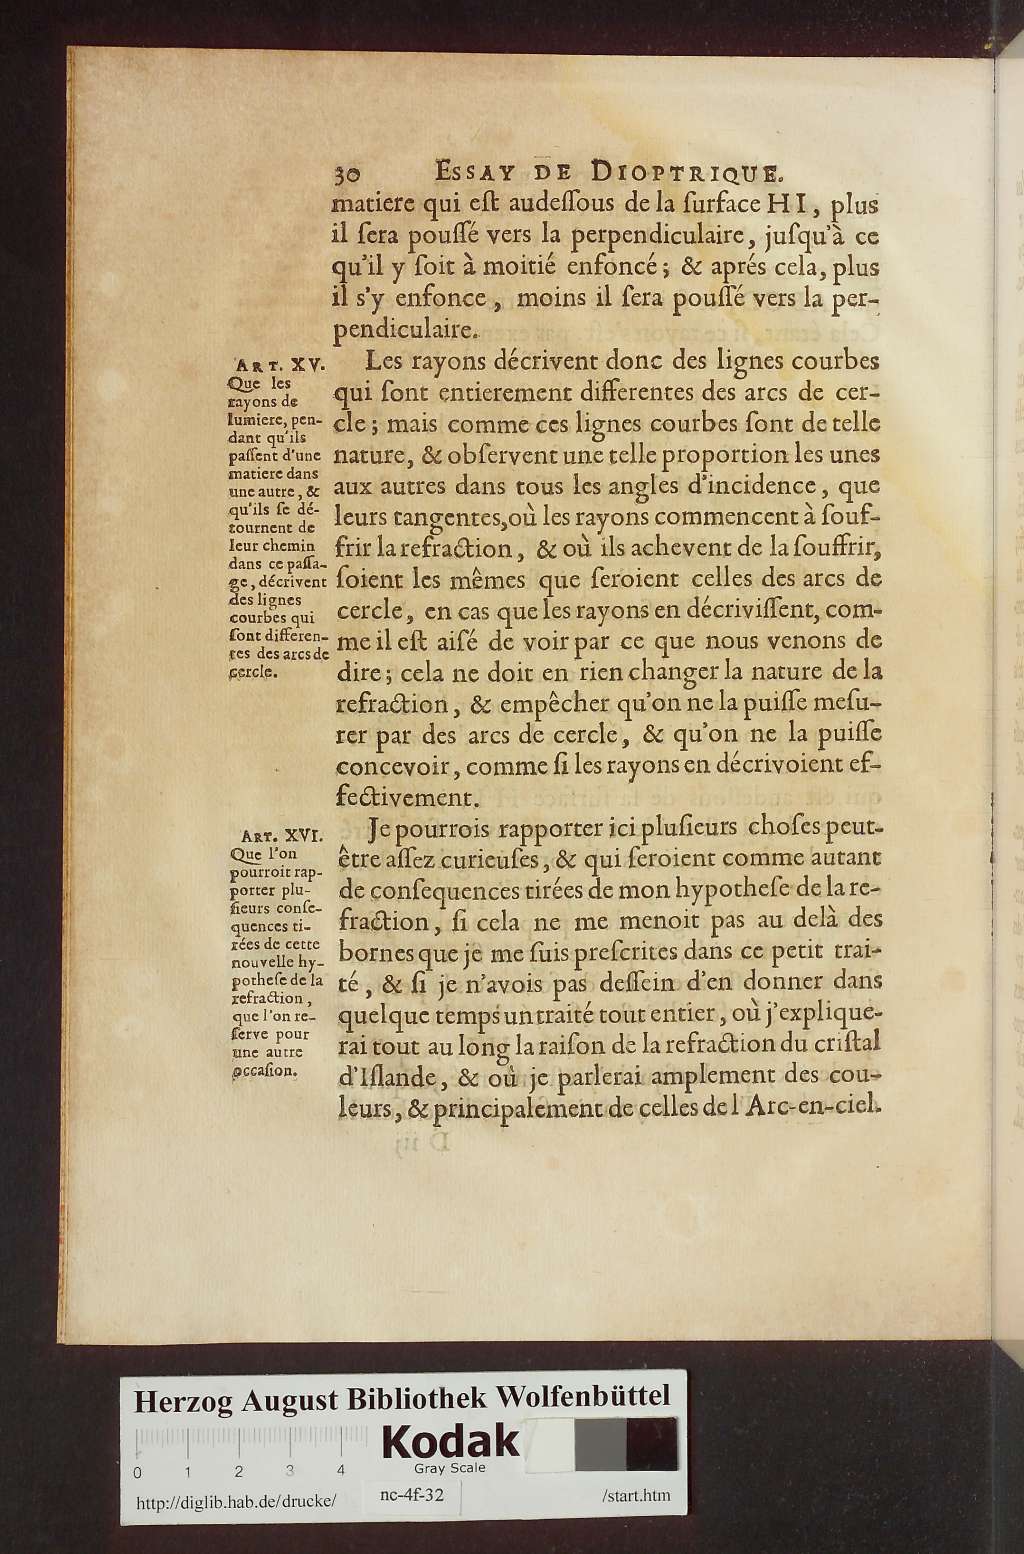 30 ESSAY DE DIOPTRIQUE.
matiere qui eſt audeſſous de la ſurface H I, plus
il ſera pouſſé vers la perpendiculaire, juſqu'à ce
qu'il y ſoit à moitié enfoncé; & aprés cela, plus
il s'y enfonce, moins il ſera pouſſé vers la per-
pendiculaire.
ART. XV.
Que les
rayons de
lumiere, pen-
dant qu'ils
paſſent d'une
matiere dans
une autre, &
qu'ils ſe dé-
tournent de
leur chemin
dans ce paſſa-
ge, décrivent
des lignes
courbes qui
ſont differen-
tes des arcs de
cercle.
Les rayons décrivent donc des lignes courbes
qui ſont entierement differentes des arcs de cer-
cle; mais comme ces lignes courbes ſont de telle
nature, & obſervent une telle proportion les unes
aux autres dans tous les angles d'incidence, que
leurs tangentes, où les rayons commencent à ſouf-
frir la refraction, & où ils achevent de la ſouffrir,
ſoient les mêmes que ſeroient celles des arcs de
cercle, en cas que les rayons en décriviſſent, com-
me il eſt aiſé de voir par ce que nous venons de
dire; cela ne doit en rien changer la nature de la
refraction, & empêcher qu'on ne la puiſſe meſu-
rer par des arcs de cercle, & qu'on ne la puiſſe
concevoir, comme ſi les rayons en décrivoient ef-
fectivement.
ART. XVI.
Que l'on
pourroit rap-
porter plu-
ſieurs conſe-
quences ti-
rées de cette
nouvelle hy-
potheſe de la
refraction,
que l'on re-
ſerve pour
une autre
occaſion.
Je pourrois rapporter ici pluſieurs choſes peut-
être aſſez curieuſes, & qui ſeroient comme autant
de conſequences tirées de mon hypotheſe de la re-
fraction, ſi cela ne me menoit pas au delà des
bornes que je me ſuis preſcrites dans ce petit trai-
té, & ſi je n'avois pas deſſein d'en donner dans
quelque temps un traité tout entier, où j'explique-
rai tout au long la raiſon de la refraction du criſtal
d'Iſlande, & où je parlerai amplement des cou-
leurs, & principalement de celles de l Arc-en-ciel.
Herzog August Bibliothek Wolfenbüttel
Kodak
Gray Scale
0 1 2 3 4
http://diglib.hab.de/drucke/ nc-4f-32 /start.htm